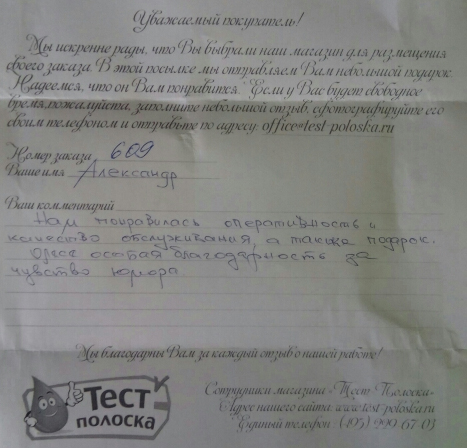 Уважаемый покупатель!
Мы искренне рады, что Вы выбрали наш магазин для размещения
своего заказа. В этой посылке мы отправляем Вам небольшой подарок.
Надеемся, что он Вам понравится. Если у Вас будет свободное
время, пожалуйста, заполните небольшой отзыв, сфотографируйте его
своим телефоном и отправьте по адресу office@test-poloska.ru
Номер заказа 609
Ваше имя Александр
Ваш комментарий
Нам понравилась оперативность и
качество обслуживания, а также подарок.
особая благодарность за
чувство юмора
Мы благодарны Вам за каждый отзыв о нашей работе!
Тест
полоска
Сотрудники магазина «Тест Полоска»
Адрес нашего сайта: www.test-poloska.ru
Единый телефон: (495) 999-67-03